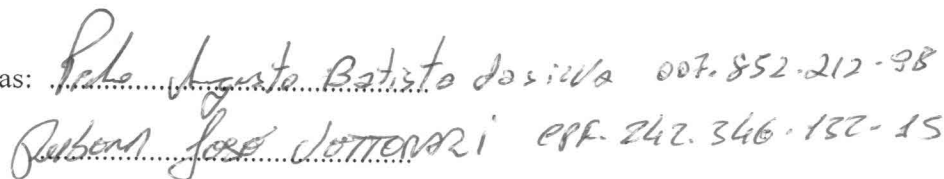 as: Pedro Augusto Batista da silva 007.852.212-98
José CPF. 242.346.132-15